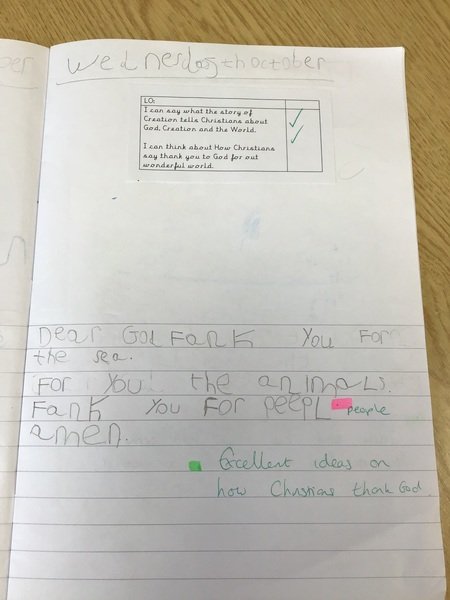 Wednesday 7th October
LO:
I can say what the story of
Creation tells Christians about
God, Creation and the World.
I can think about How Christians
say thank you to God for out
wonderful world.
Dear God Fank You For
the sea.
For You the animals.
Fank You For peepl people
amen.
Excellent ideas on
how Christians thank God.